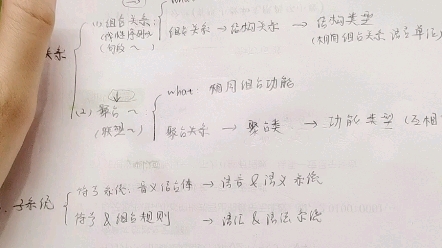 what
(1) 组合关系:
(线性序列~)
(句段~)
组合关系 → 结构关系 → 结构类型
(相同组合关系 语言单位)
关系
(2) 聚合~
(联想~)
what: 相同组合功能
聚合关系 → 聚合类 → 功能类型 (互相
子系统
符号系统: 音义结合体 → 语音 & 语义系统
符号 & 组合规则 → 语汇 & 语法系统